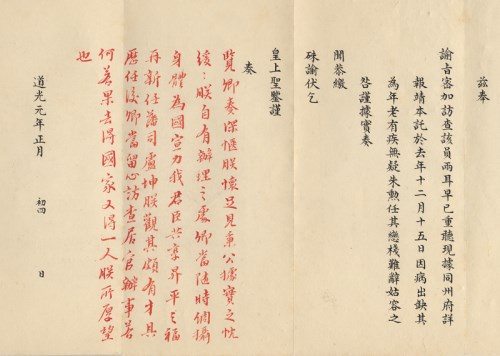 茲奉
諭旨審加訪查該員兩耳早已重聽現據同州府詳
報靖本託於去年十二月十五日因病出缺其
為年老有疾無疑朱勲任其戀棧難辭姑容之
咎謹據實奏
聞恭繳
硃諭伏乞
皇上聖鑒謹
奏
覽卿奏深愜朕懷足見秉公據實之忱
後〻朕自有辦理之處卿當隨時調攝
身體為國宣力我君臣共享昇平之福
再新任藩司盧坤朕觀其頗有才具
歷任後卿當留心訪查居官辦事若
何若果去得國家又得一人朕所厚望
也
道光元年正月 初四 日